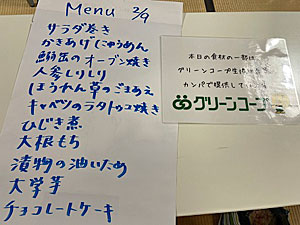 Menu 2/9
サラダ巻き
かきあげにゅうめん
鯖缶のオーブン焼き
人参しりしり
ほうれん草のごまあえ
キャベツのラタトゥユ焼き
ひじき煮
大根もち
漬物の油いため
大学芋
チョコレートケーキ
本日の食材の一部は
グリーンコープ生活協同
カンパで提供して
グリーンコープ